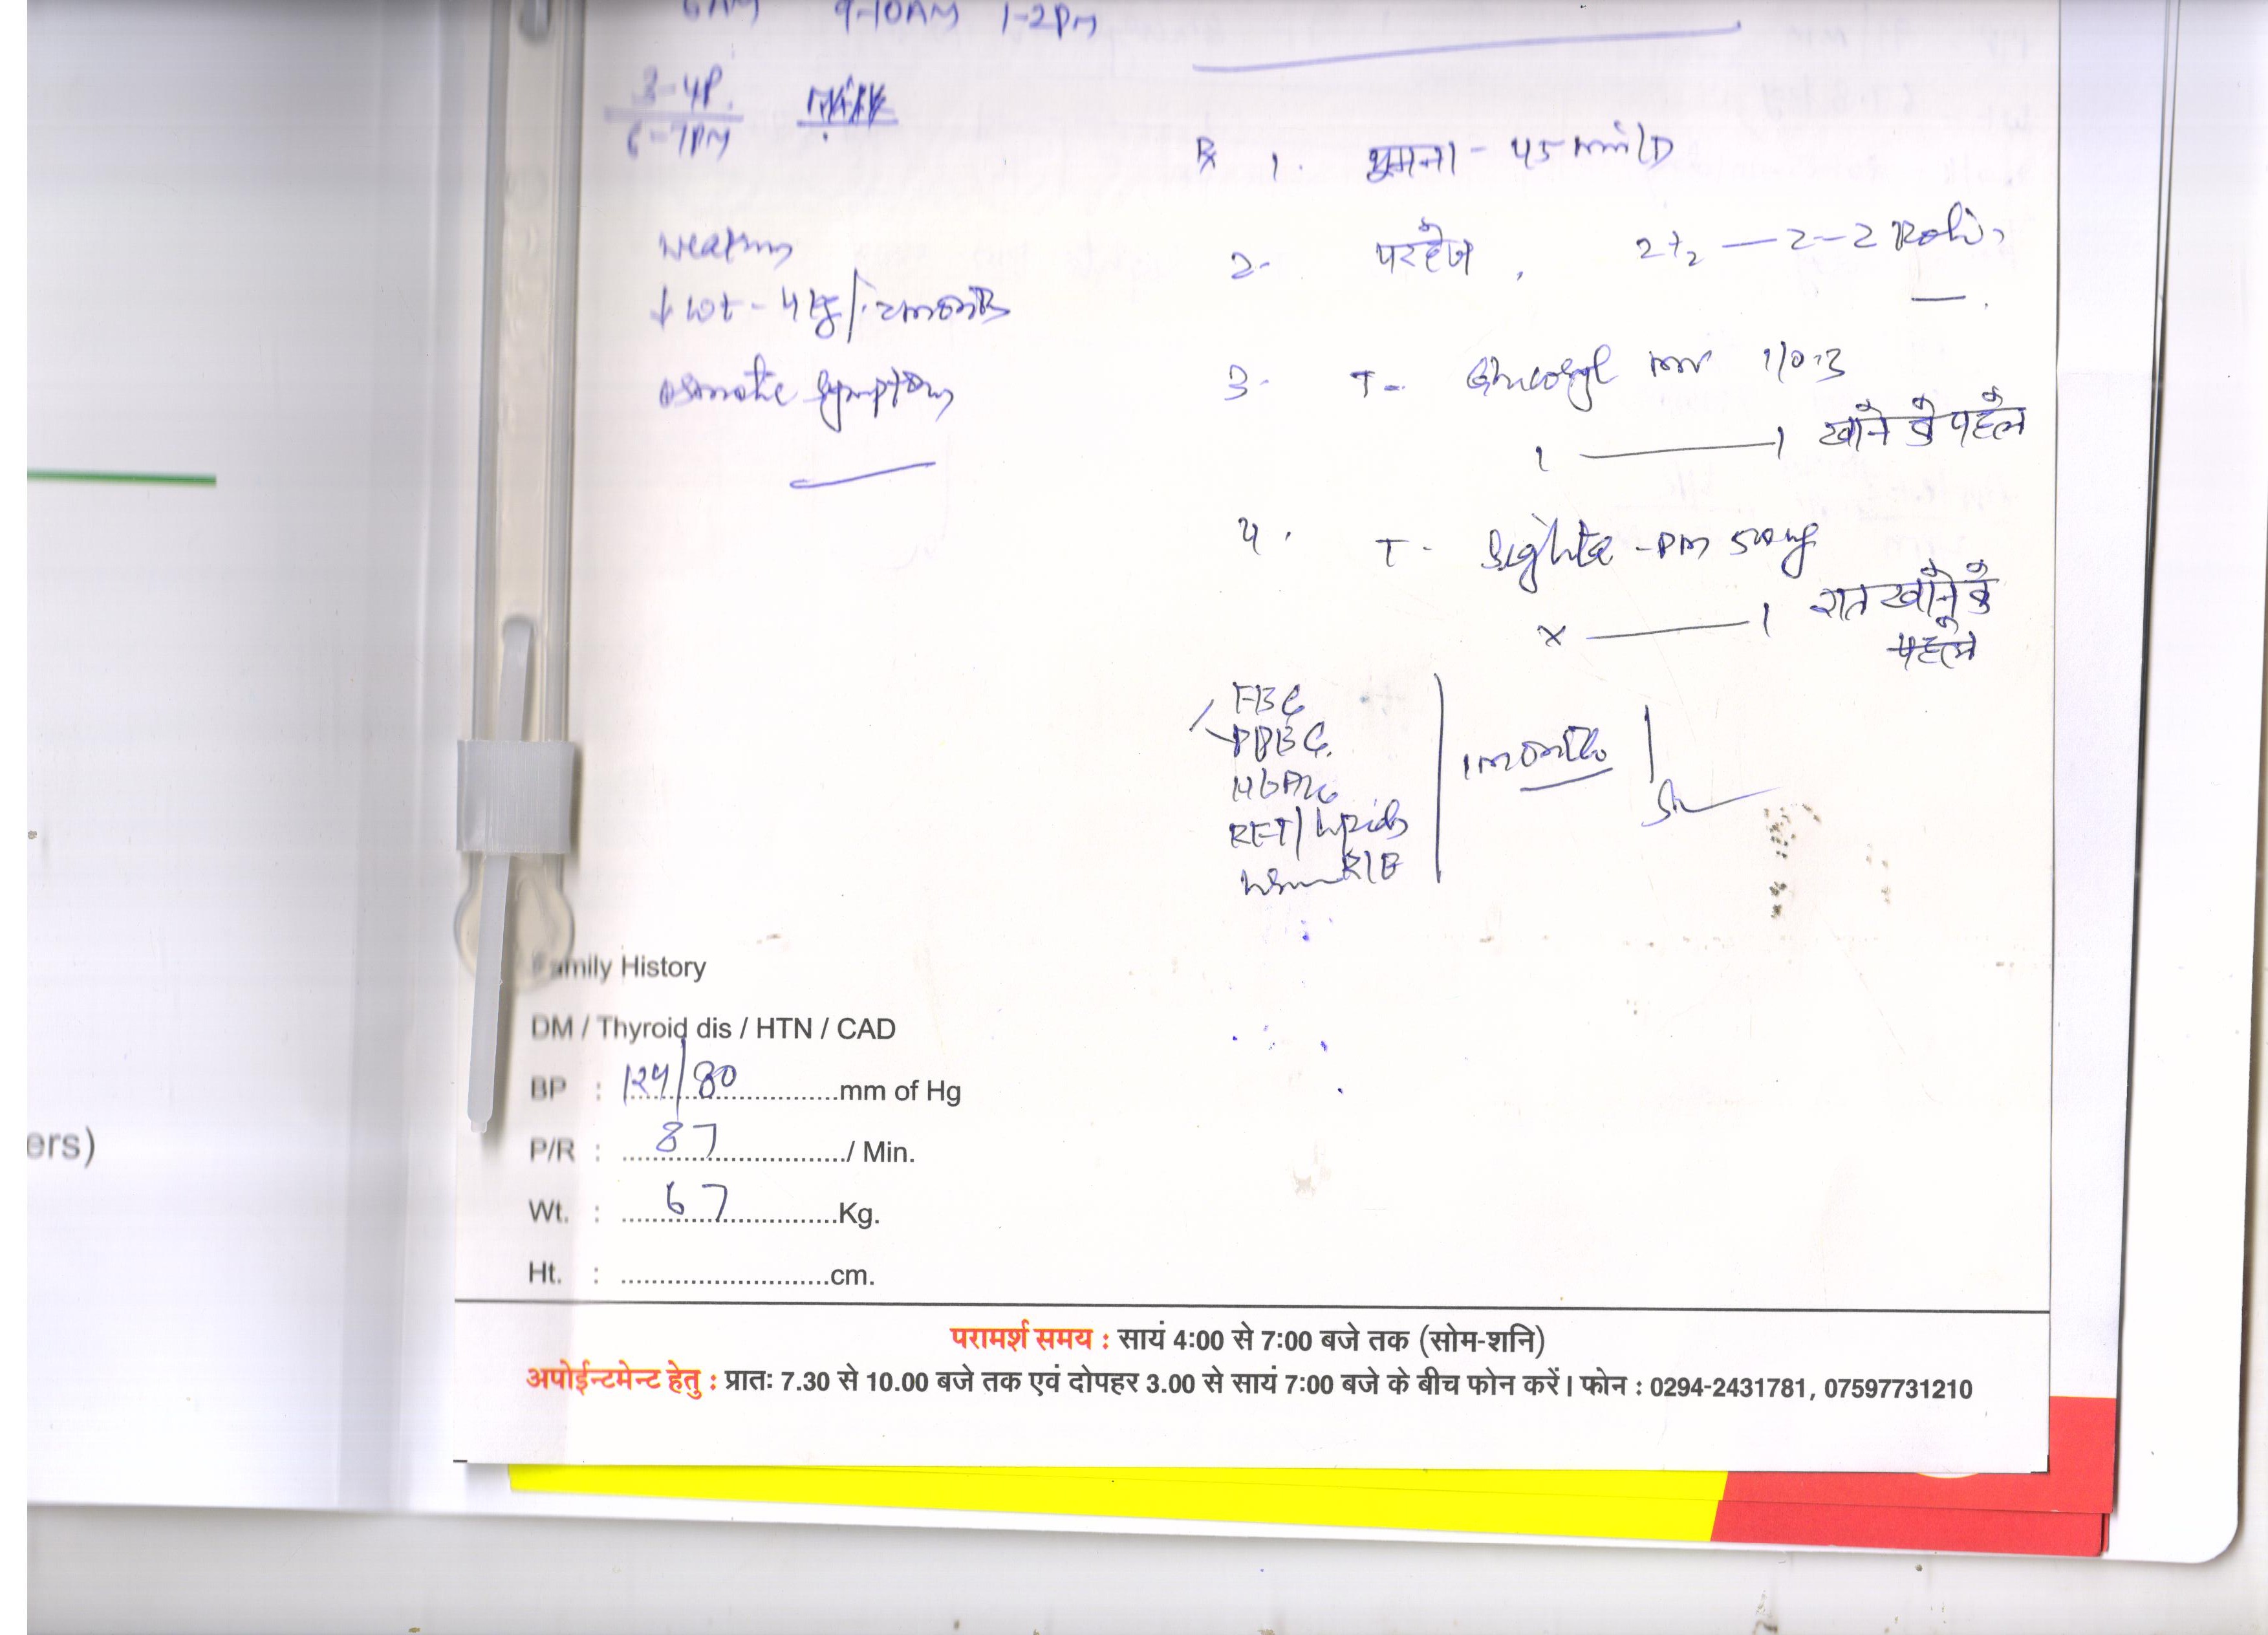 6AM 9-10AM 1-2PM
3-4P.
6-7PM
↓ wt - 4 kg/
osmotic symptoms
Rx 1. घूमना - 45 min/D
2- परहेज, 2 - 2 Roti
3- T- mv 1/0.3
1 — 1 खाने के पहले
4. T- - PM 500mg
x — 1 रात खाने के
पहले
FBG
PPBG
HbA1c
RFT/Lipids
R/E
1 month
Family History
DM / Thyroid dis / HTN / CAD
BP : 124/80 mm of Hg
P/R : 87 / Min.
Wt. : 67 Kg.
Ht. : cm.
ers)
परामर्श समय : सायं 4:00 से 7:00 बजे तक (सोम-शनि)
अपोईन्टमेन्ट हेतु : प्रात: 7.30 से 10.00 बजे तक एवं दोपहर 3.00 से सायं 7:00 बजे के बीच फोन करें। फोन : 0294-2431781, 07597731210